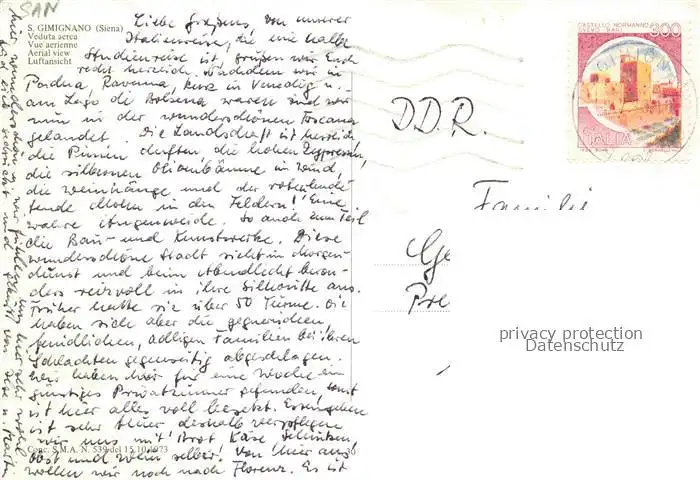 SAN
S. GIMIGNANO (Siena)
Veduta aerea
Vue aerienne
Aerial view
Luftansicht
Liebe von unserer
Italienreise, die eine halbe
Studienreise ist, grüßen wir Euch
recht herzlich. Nachdem wir in
Padua, Ravenna, kurz in Venedig u.
am Lago di Bolsena waren sind wir
nun in der wunderschönen Toscana
gelandet. Die Landschaft ist herrlich
die Pinien duften, die hohen Zypressen,
die silbernen Olivenbäume im Wind,
die Weinhänge und der rotleuch
tende Mohn in den Feldern! Eine
wahre Augenweide. So auch zum Teil
die Bau- und Kunstwerke. Diese
wunderschöne Stadt sieht im Morgen-
dunst und beim Abendlicht beson-
ders reizvoll in ihre Silhouitte aus.
Früher hatte sie über 50 Türme. Die
haben sich aber die gegnerischen,
feindlichen, adligen Familien bei ihren
Schlachten gegenseitig abgeschlagen.
Wir haben hier für eine Woche ein
günstiges Privatzimmer gefunden, sonst
ist hier alles voll besetzt. Essengehen
ist sehr teuer deshalb verpflegen
wir uns mit Brot, Käse, Schinken,
Obst und Wein selber! Von hier aus
wollen wir noch nach Florenz. Es ist
hier wunderschön u. wir fühlen uns hier sehr wohl
und
Conc. S.M.A. N. 539 del 15.10.1973
D.D.R.
CASTELLO NORMANNO
SVEVO BARI
300
ITALIA
Familie
Ge
Pre
privacy protection
Datenschutz